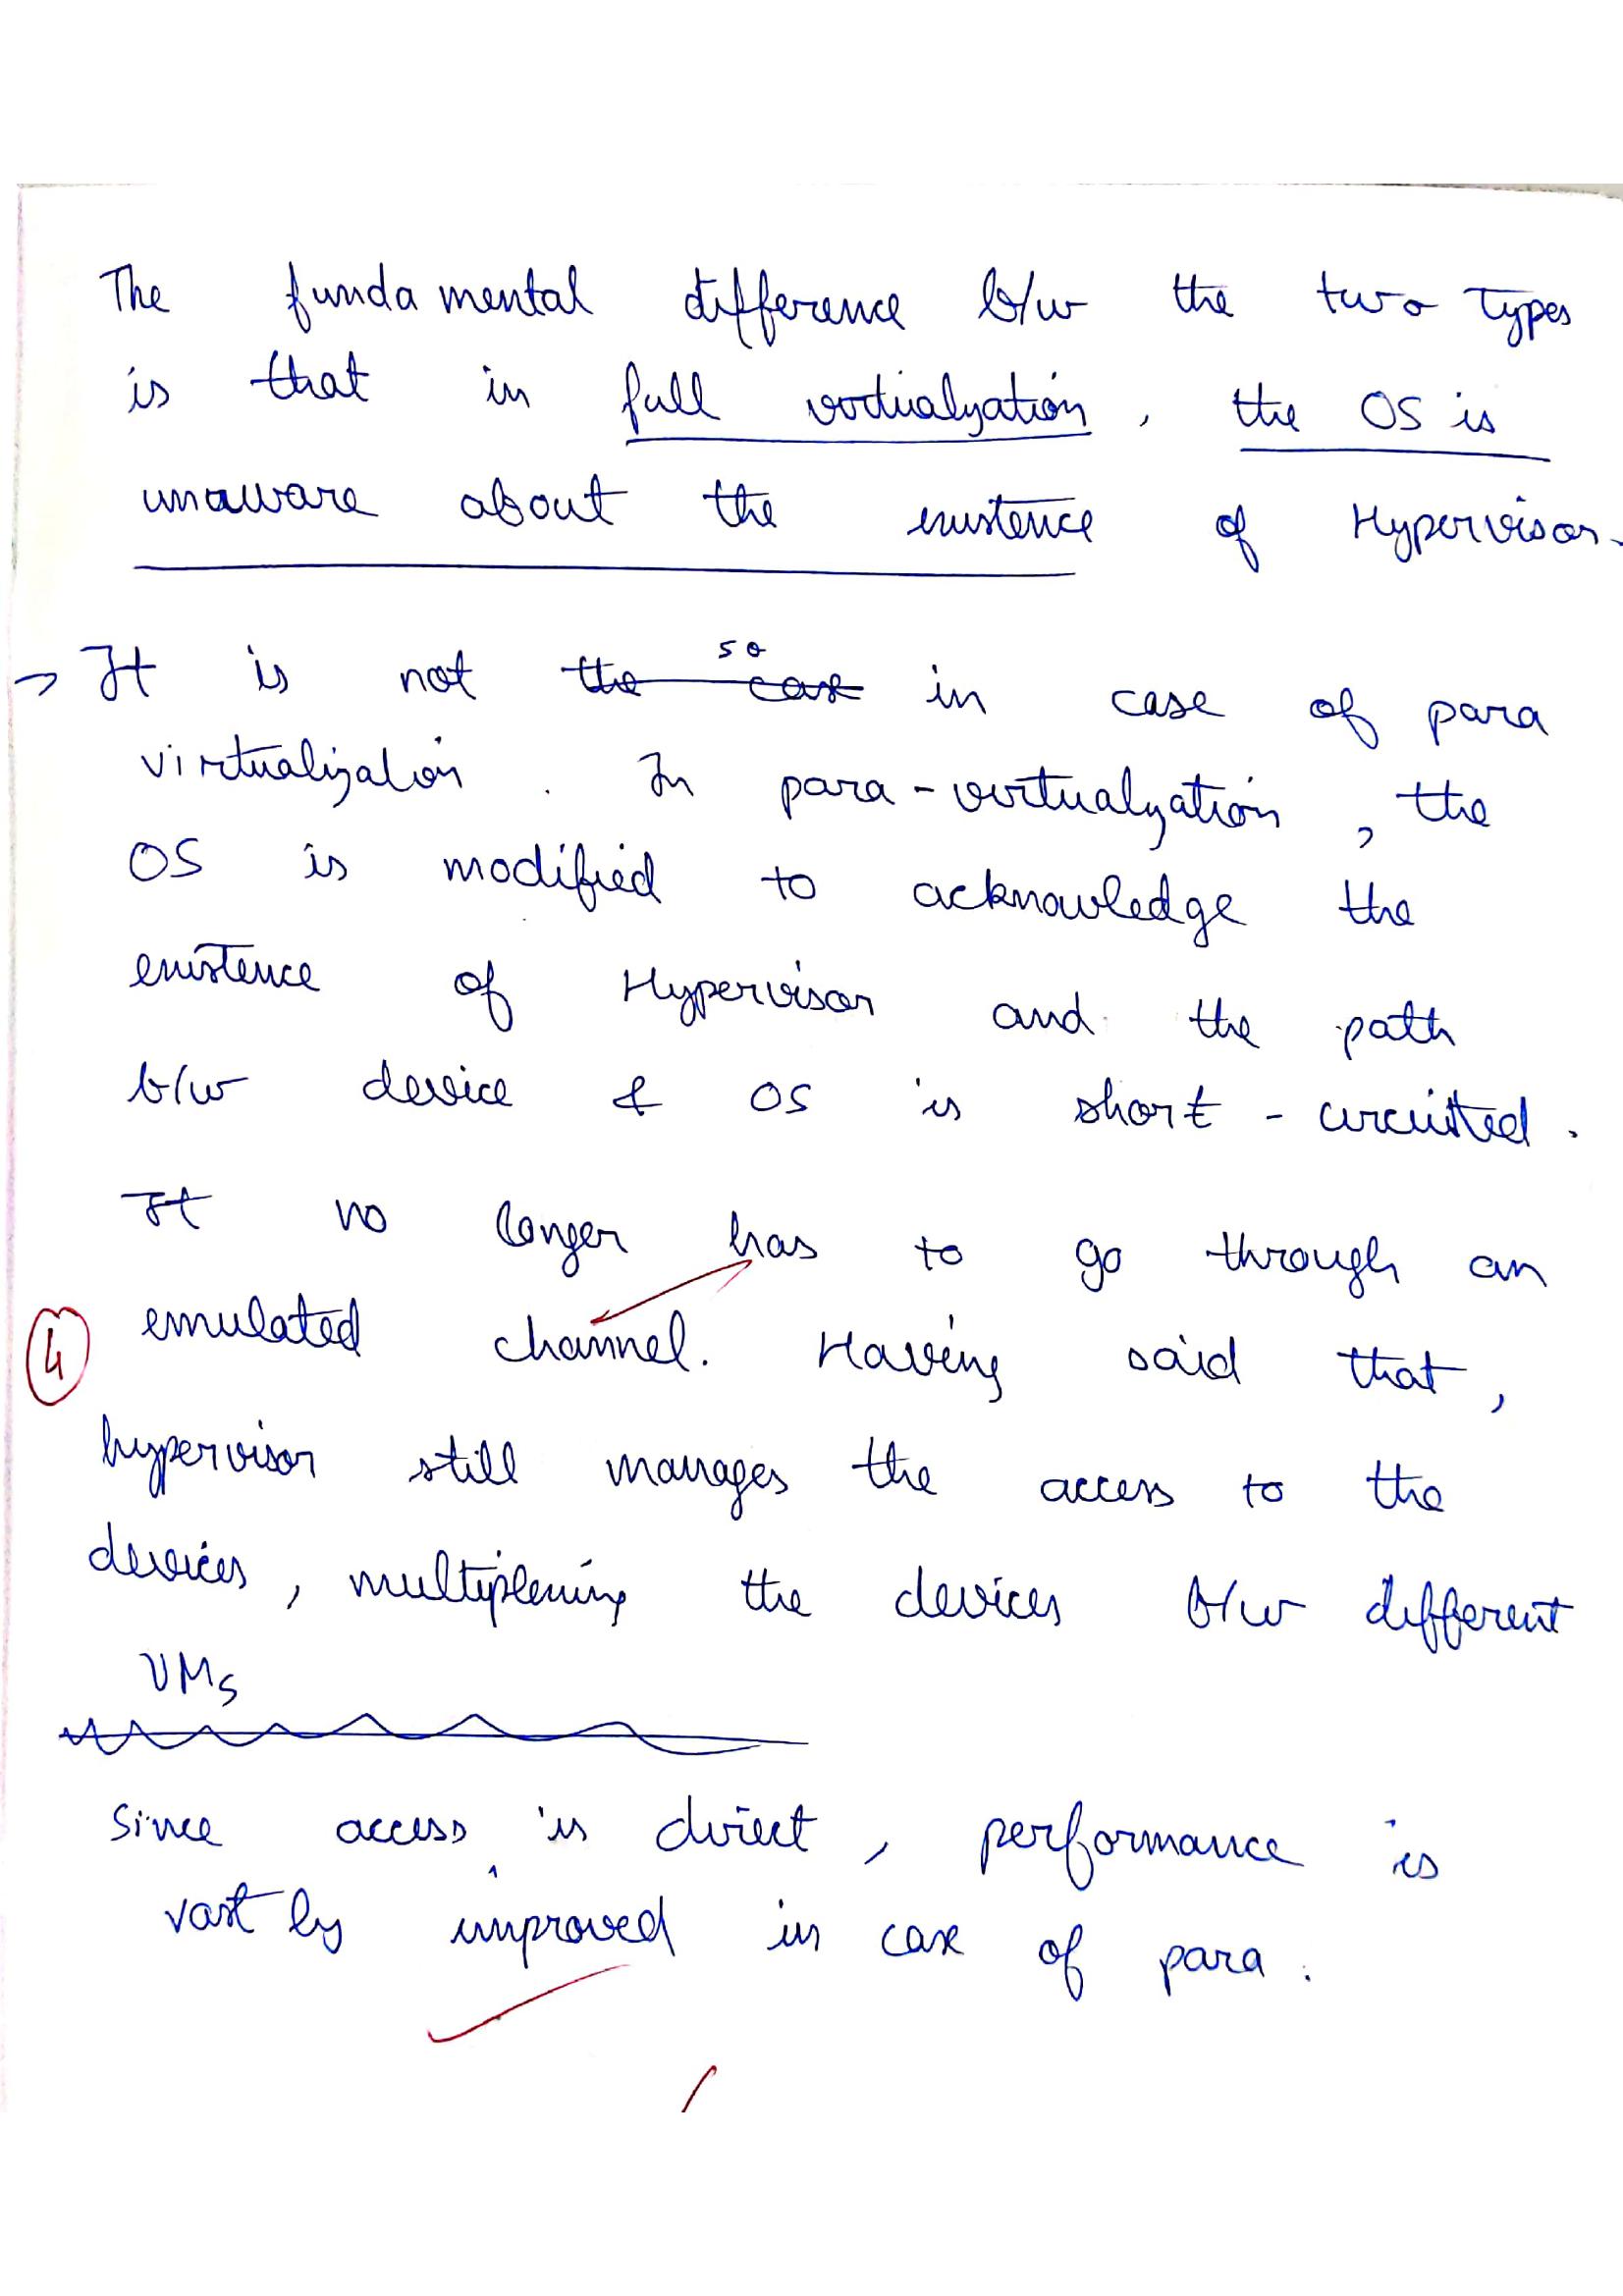 The fundamental difference b/w the two types
is that in full virtualization, the OS is
unaware about the existence of Hypervisor.
→ It is not the case so in case of para
virtualization. In para-virtualization, the
OS is modified to acknowledge the
existence of Hypervisor and the path
b/w device & OS is short-circuited.
It no longer has to go through an
emulated channel. Having said that,
4
hypervisor still manages the access to the
devices, multiplexing the devices b/w different
VMs
Since access is direct, performance is
vastly improved in case of para.